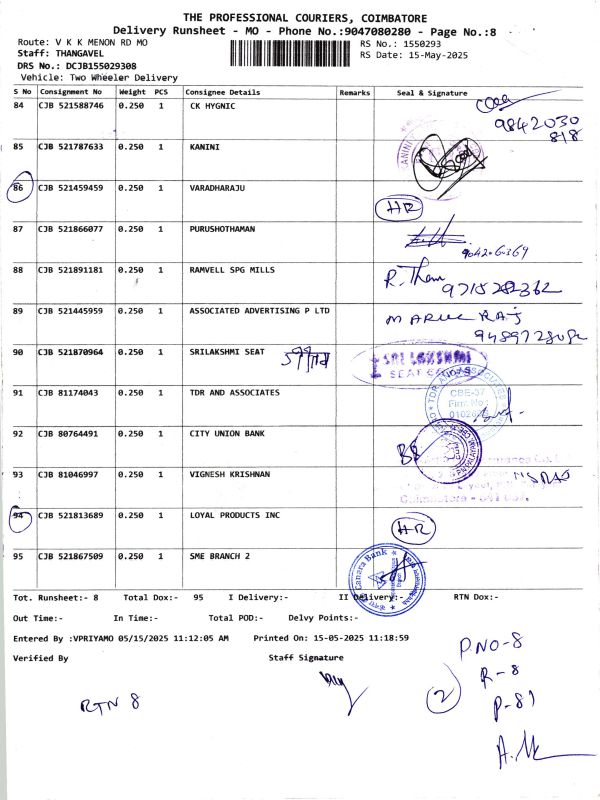 THE PROFESSIONAL COURIERS, COIMBATORE
Delivery Runsheet - MO - Phone No.:9047080280 - Page No.:8
Route: V K K MENON RD MO
RS No.: 1550293
Staff: THANGAVEL
RS Date: 15-May-2025
DRS No.: DCJB155029308
Vehicle: Two Wheeler Delivery
S No Consignment No Weight PCS Consignee Details Remarks Seal & Signature
84 CJB 521588746 0.250 1 CK HYGNIC
9842030
818
85 CJB 521787633 0.250 1 KANINI
86 CJB 521459459 0.250 1 VARADHARAJU
HR
87 CJB 521866077 0.250 1 PURUSHOTHAMAN
88 CJB 521891181 0.250 1 RAMVELL SPG MILLS
R. Tham
89 CJB 521445959 0.250 1 ASSOCIATED ADVERTISING P LTD
90 CJB 521870964 0.250 1 SRILAKSHMI SEAT
SRI LAKSHMI
SEAT
91 CJB 81174043 0.250 1 TDR AND ASSOCIATES
TDR AND ASSOCIATES
CBE-37
Firm No
92 CJB 80764491 0.250 1 CITY UNION BANK
93 CJB 81046997 0.250 1 VIGNESH KRISHNAN
Coimbatore - 641
94 CJB 521813689 0.250 1 LOYAL PRODUCTS INC
HR
95 CJB 521867509 0.250 1 SME BRANCH 2
Canara Bank
Tot. Runsheet:- 8 Total Dox:- 95 I Delivery:- II Delivery:- RTN Dox:-
Out Time:- In Time:- Total POD:- Delvy Points:-
Entered By :VPRIYAMO 05/15/2025 11:12:05 AM Printed On: 15-05-2025 11:18:59
Verified By Staff Signature
P.NO-8
R-8
2
P-81
RTN 8